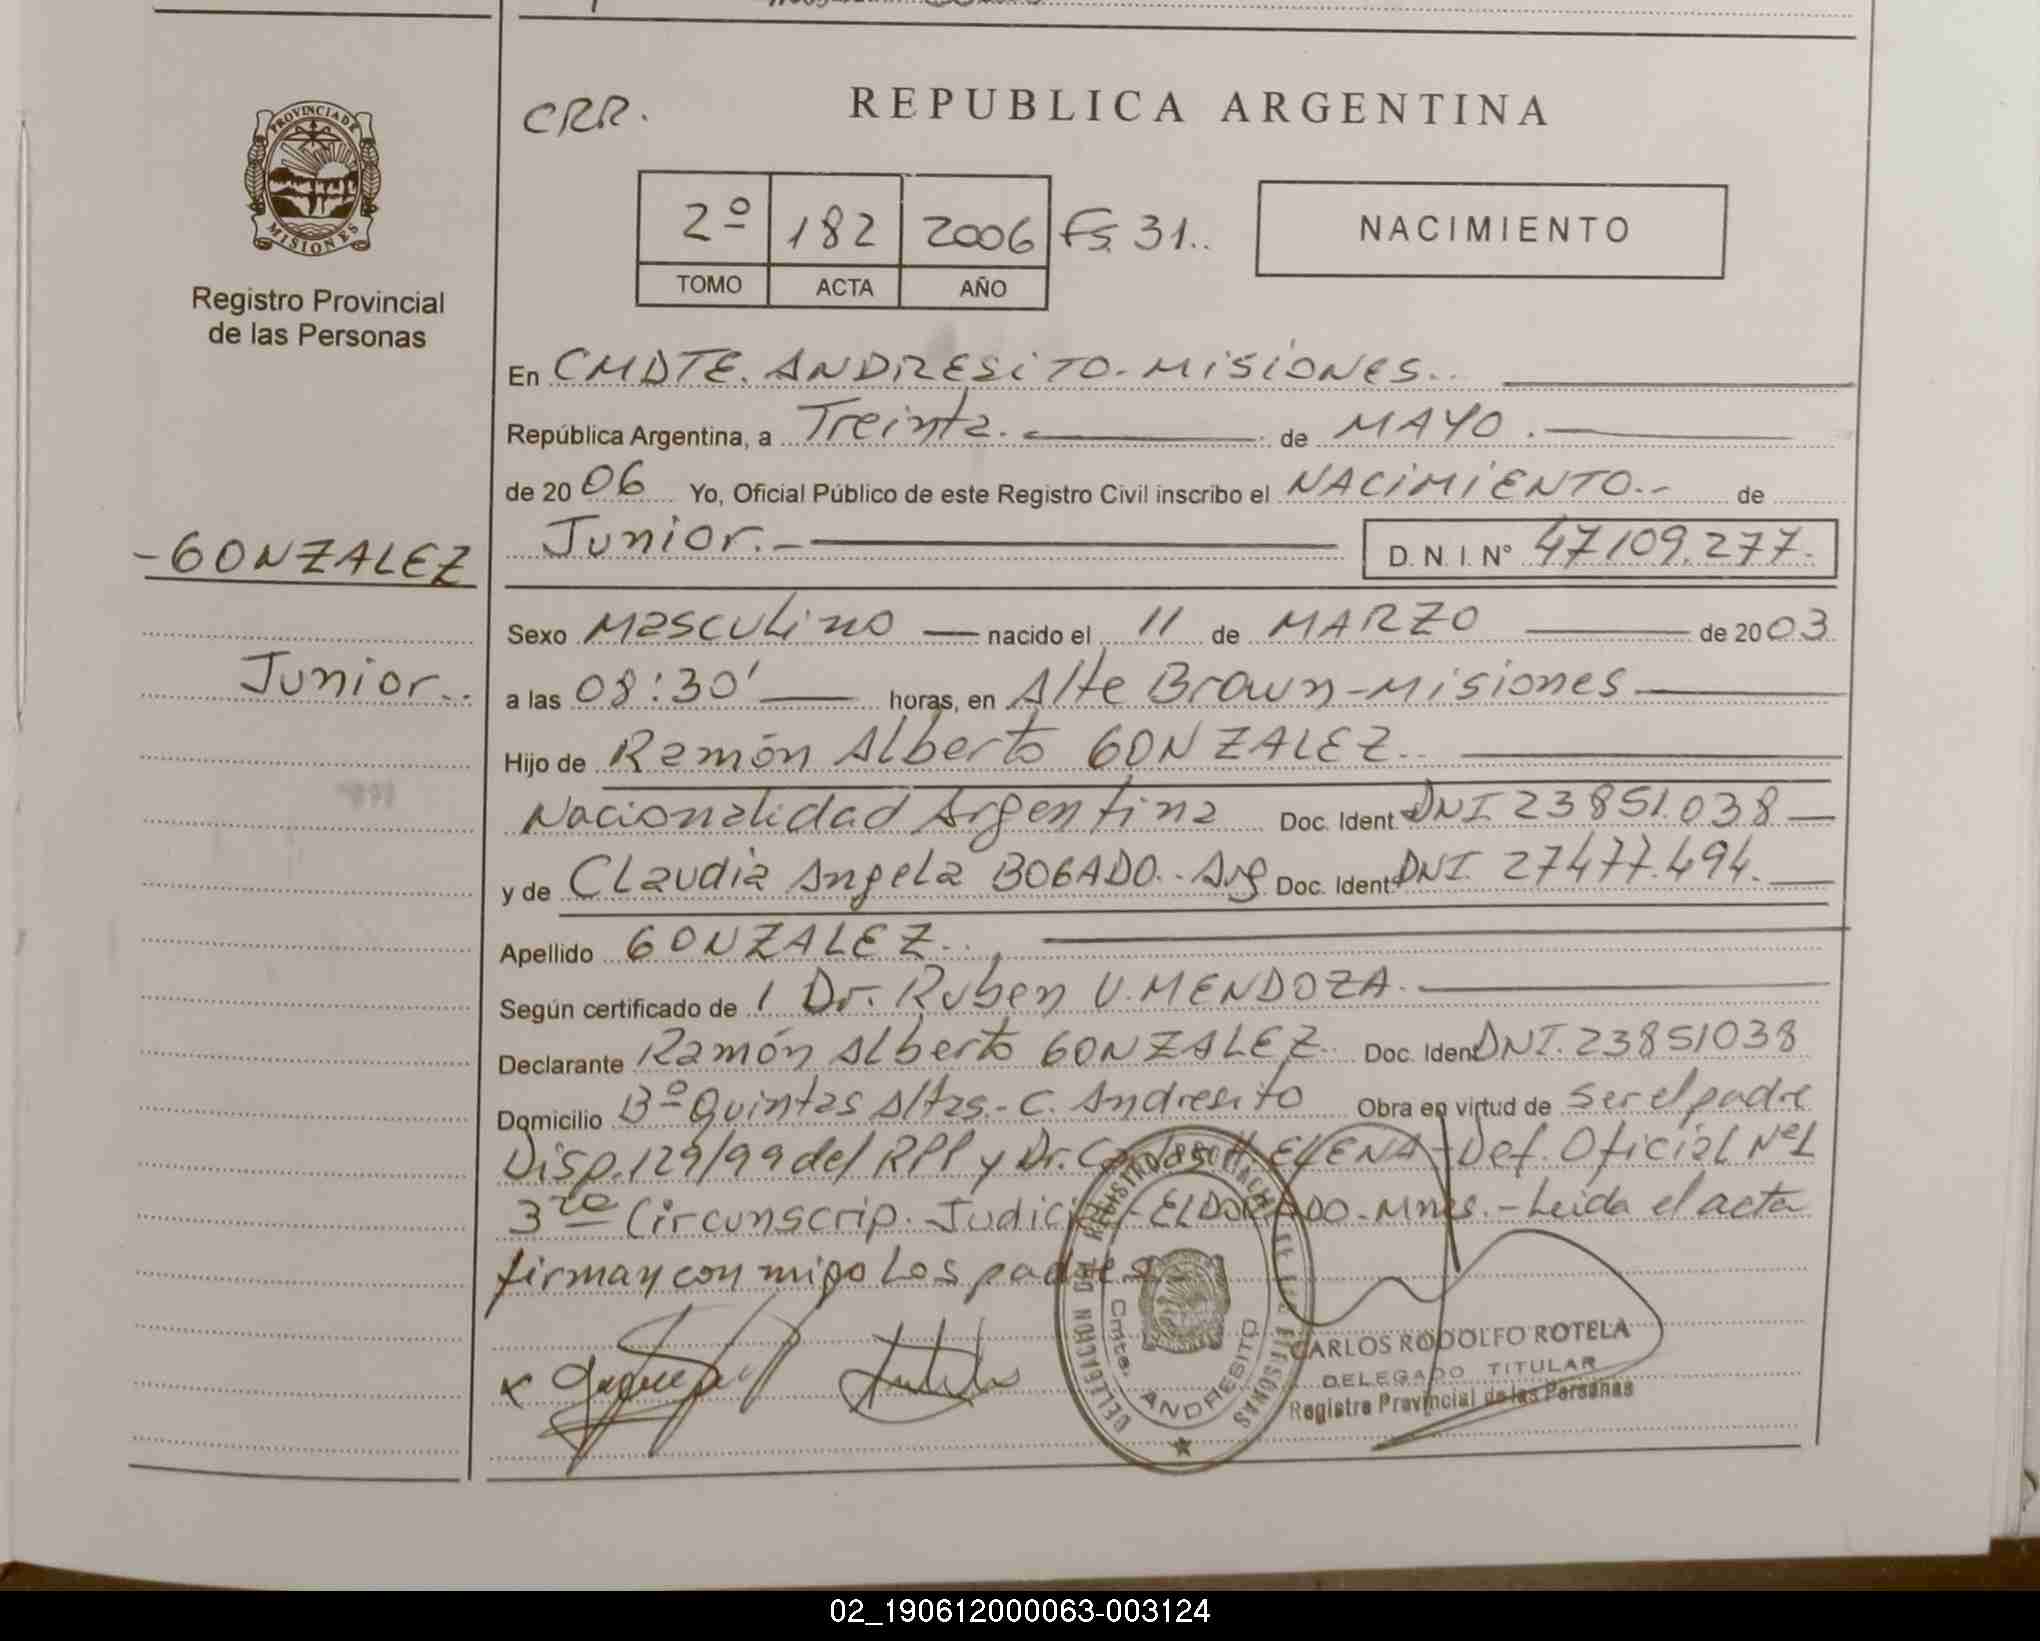 PROVINCIA DE
MISIONES
Registro Provincial
de las Personas
- GONZALEZ
Junior..
CRR.
REPUBLICA ARGENTINA
2º 182 2006 Fs. 31..
TOMO ACTA AÑO
NACIMIENTO
En CMDTE. ANDRESITO - MISIONES..
República Argentina, a Treinta. de MAYO.
de 20 06 Yo, Oficial Público de este Registro Civil inscribo el NACIMIENTO.- de
Junior.- D. N. I. N° 47109.277.
Sexo Masculino nacido el 11 de MARZO de 20 03
a las 08:30' horas, en Alte Brown - Misiones
Hijo de Ramón Alberto GONZALEZ..
Nacionalidad Argentina Doc. Ident. DNI 23851.038
y de Claudia Angela BOGADO.. Arg Doc. Ident. DNI 27477.494.
Apellido GONZALEZ..
Según certificado de 1 Dr. Ruben U. MENDOZA.
Declarante Ramón Alberto GONZALEZ.. Doc. Ident DNI. 23851038
Domicilio Bº Quintas Altas.- C. Andresito Obra en virtud de ser el padre
Disp. 129/99 del RPP y Dr. ELENA - Def. Oficial Nº1
3ra Circunscrip. Judicial - ELDORADO - Mnes. - Leida el acta
firman con migo Los padres
DELEGACION DEL REGISTRO PROVINCIAL DE LAS PERSONAS
Cmte. ANDRESITO
CARLOS RODOLFO ROTELA
DELEGADO TITULAR
Registro Provincial de las Personas
02_190612000063-003124